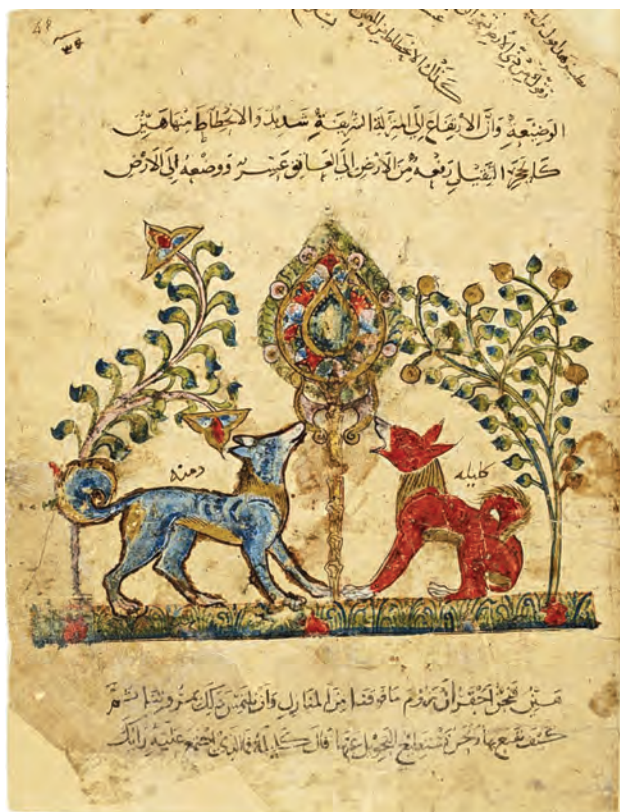 48
كذلك الانحطاط
الوضيعة وان الارتفاع الى المنزلة الشريفة شديد والانحطاط منها هين
كالحجر الثقيل رفعه من الارض الى العاتق عسر ووضعه الى الارض
دمنه
كليله
هين فنحن احق ان نروم ما فوقنا من المنازل وان نلتمس ذلك بمروتنا ثم
كيف نقنع بها ونحن نستطيع التحويل عنها قال كليلة اجتمع عليه رايك